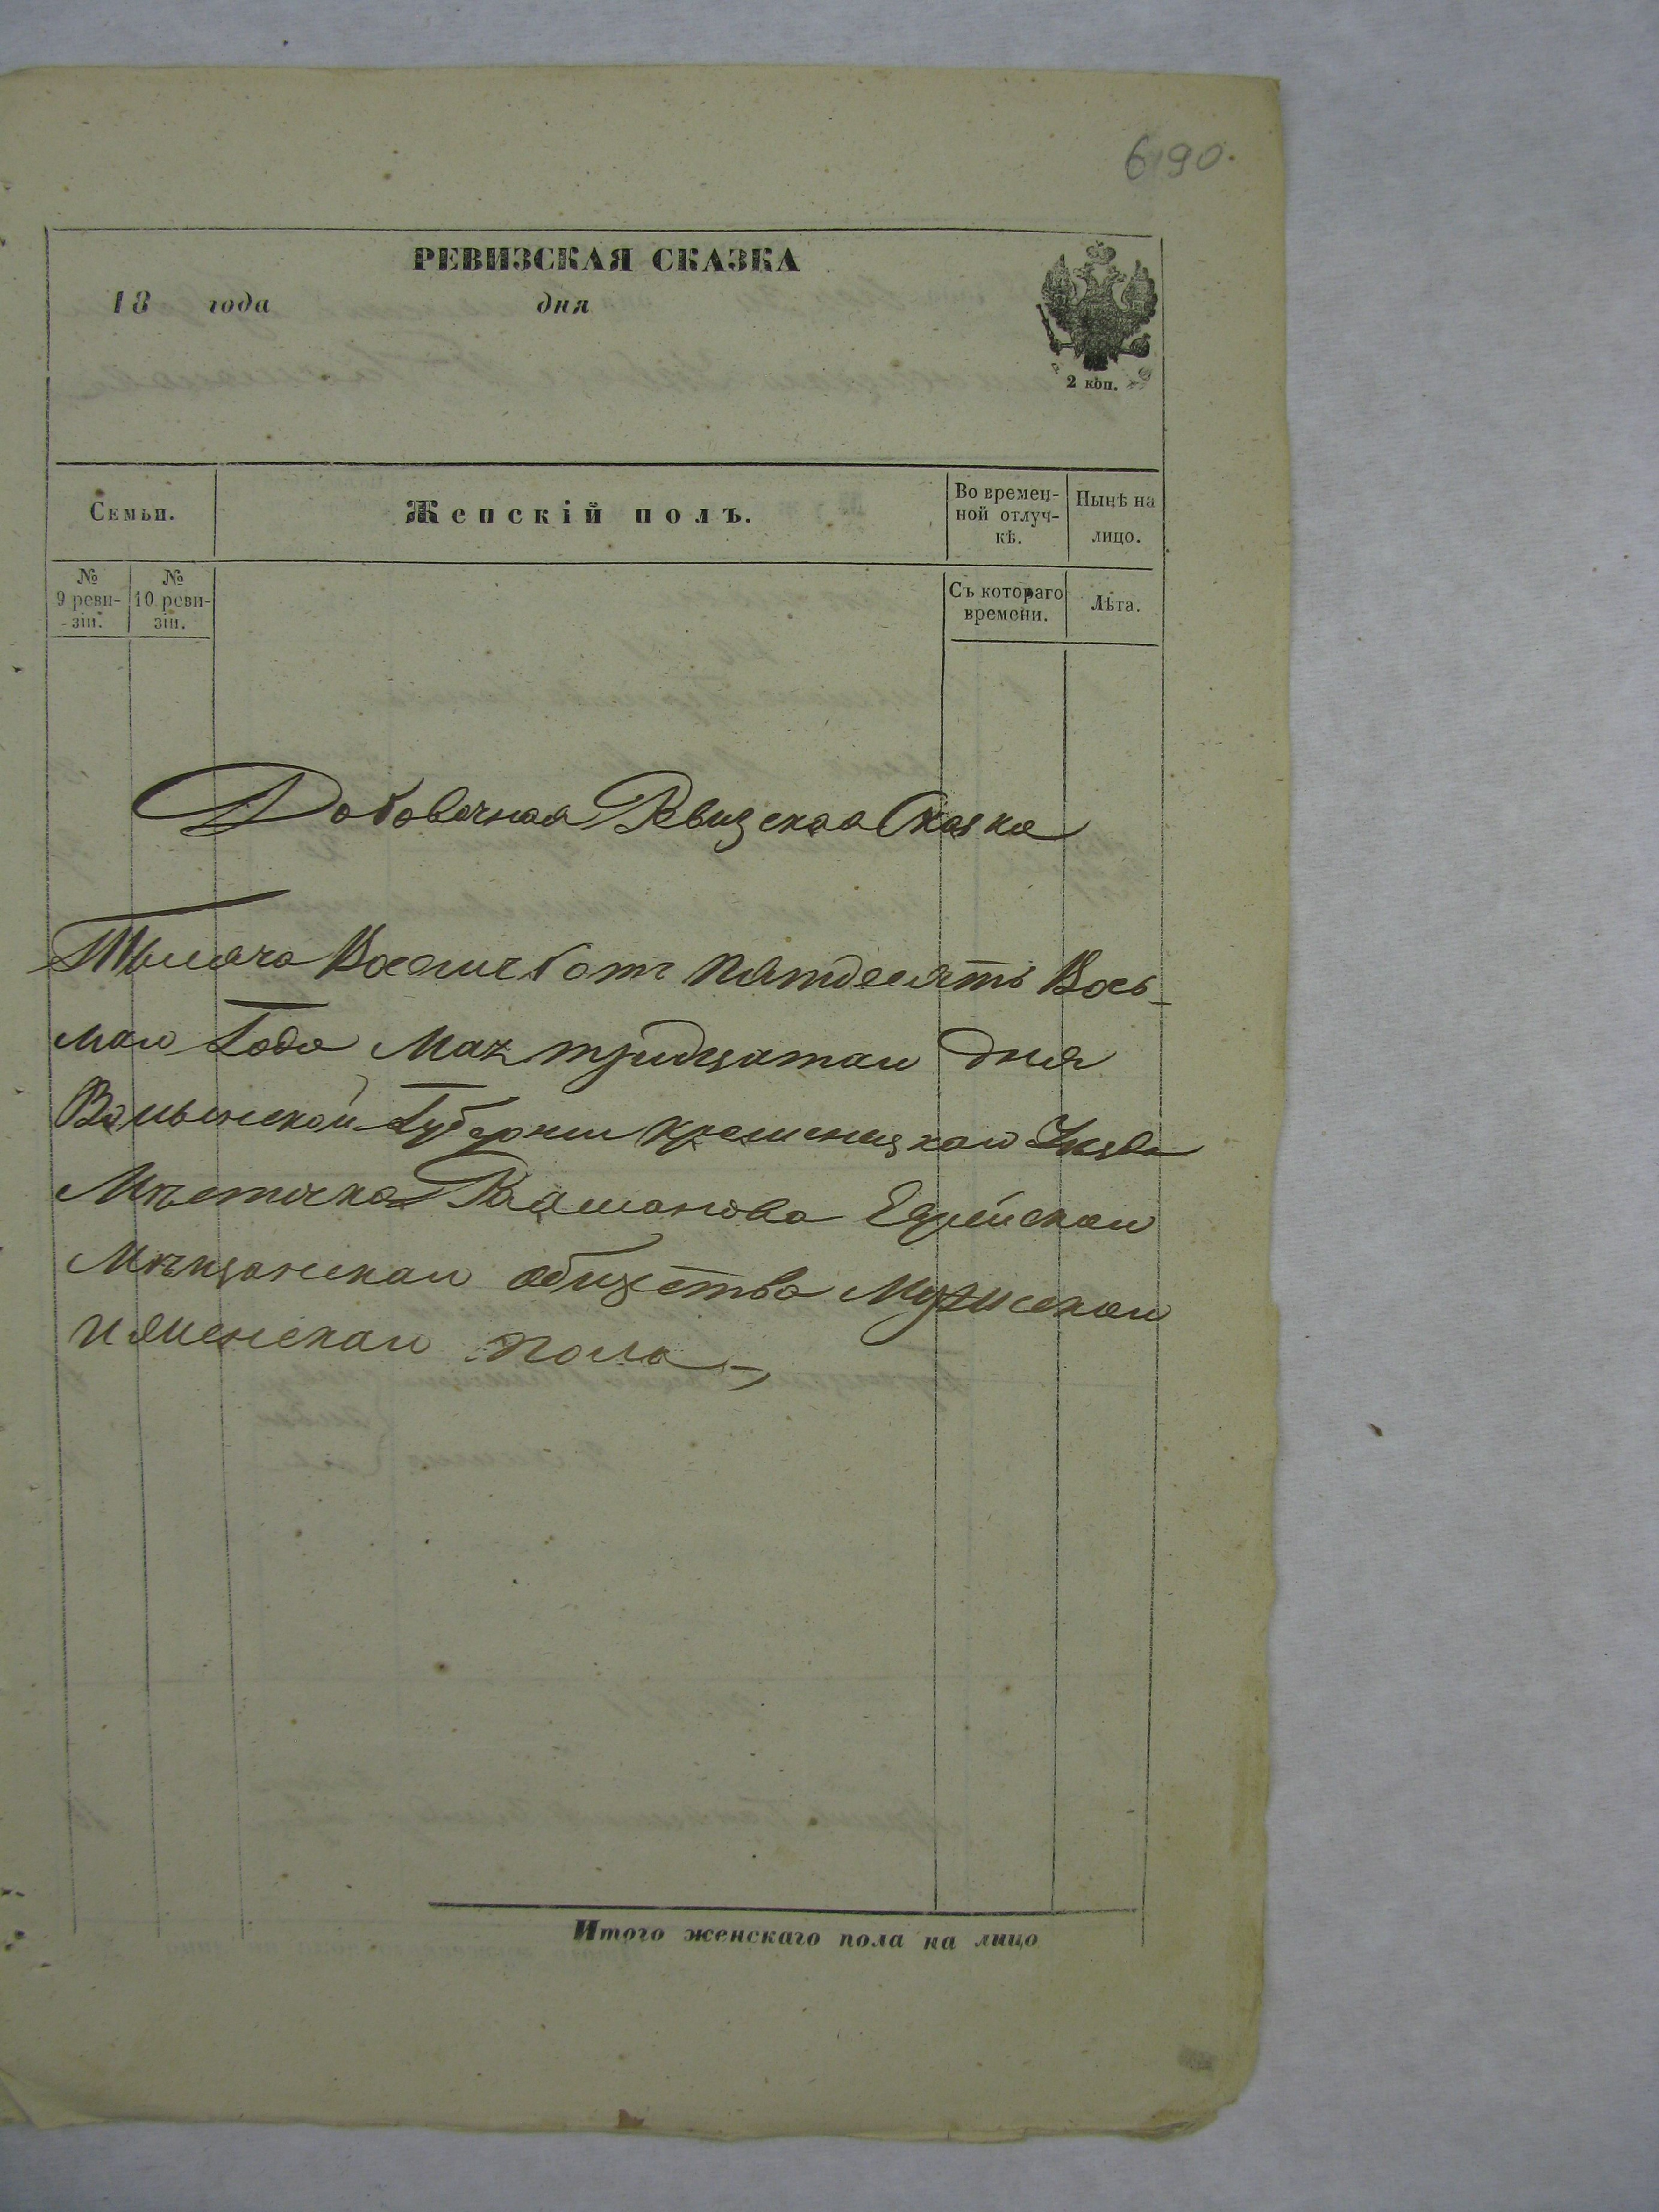 6190.
РЕВИЗСКАЯ СКАЗКА
18 года дня
2 коп.
Семьи. Женскій полъ. Во времен-ной отлуч-кѣ. Нынѣ на лицо.
№ 9 реви-зіи. № 10 реви-зіи. Съ котораго времени. Лѣта.
Добовочная Ревизская Сказка
Тысяча Восемьсотъ пятдесятъ Вось-
маго Года Мая тридцатаго дня
Волынской Губерніи Кременецкаго Уезда
Мѣстечка Рахманова Еврейскаго
Мѣщанскаго общества Мужескаго
и женскаго пола
Итого женскаго пола на лицо